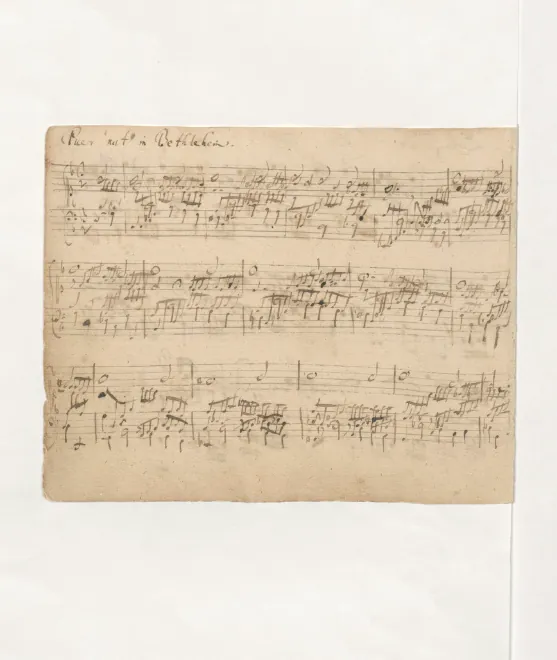 Puer nat9 in Bethlehem.